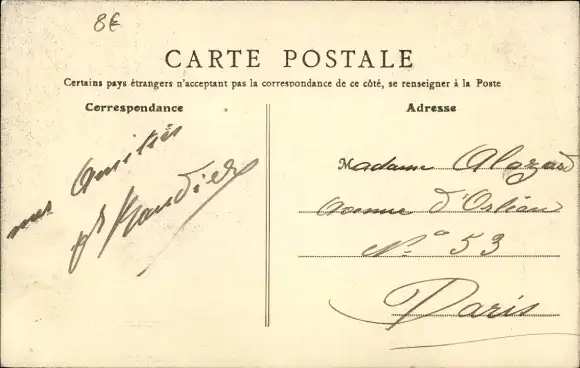 8€
CARTE POSTALE
Certains pays étrangers n'acceptant pas la correspondance de ce côté, se renseigner à la Poste
Correspondance
mes Amitiés
Adresse
Madame Alazard
Avenue d'Orléans
N° 53
Paris